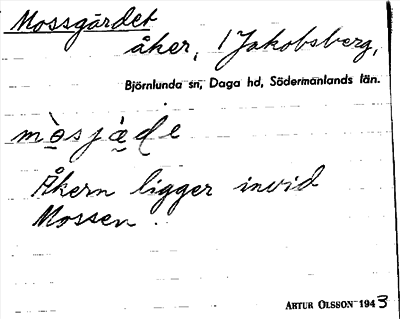 Mossgärdet
åker, 1 Jakobsberg,
Björnlunda sn, Daga hd, Södermanlands län.
Åkern ligger invid
Mossen.
ARTUR OLSSON 1943